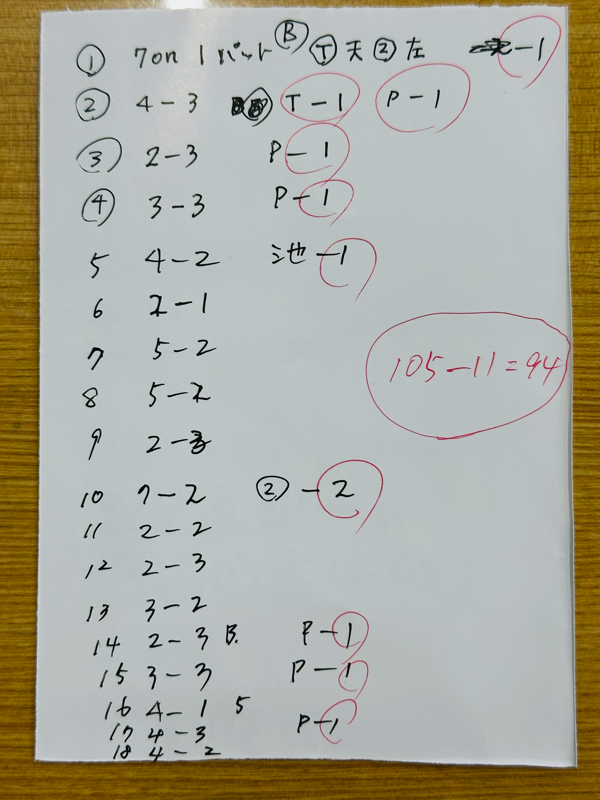 ① 7on 1パット Ⓑ Ⓣ 天 ② 左 -1
② 4-3 T-1 P-1
③ 2-3 P-1
④ 3-3 P-1
5 4-2 池-1
6 2-1
7 5-2
105-11=94
8 5-2
9 2-3
10 7-2 ②-2
11 2-2
12 2-3
13 3-2
14 2-3 B. P-1
15 3-3 P-1
16 4-1 5 P-1
17 4-3
18 4-2